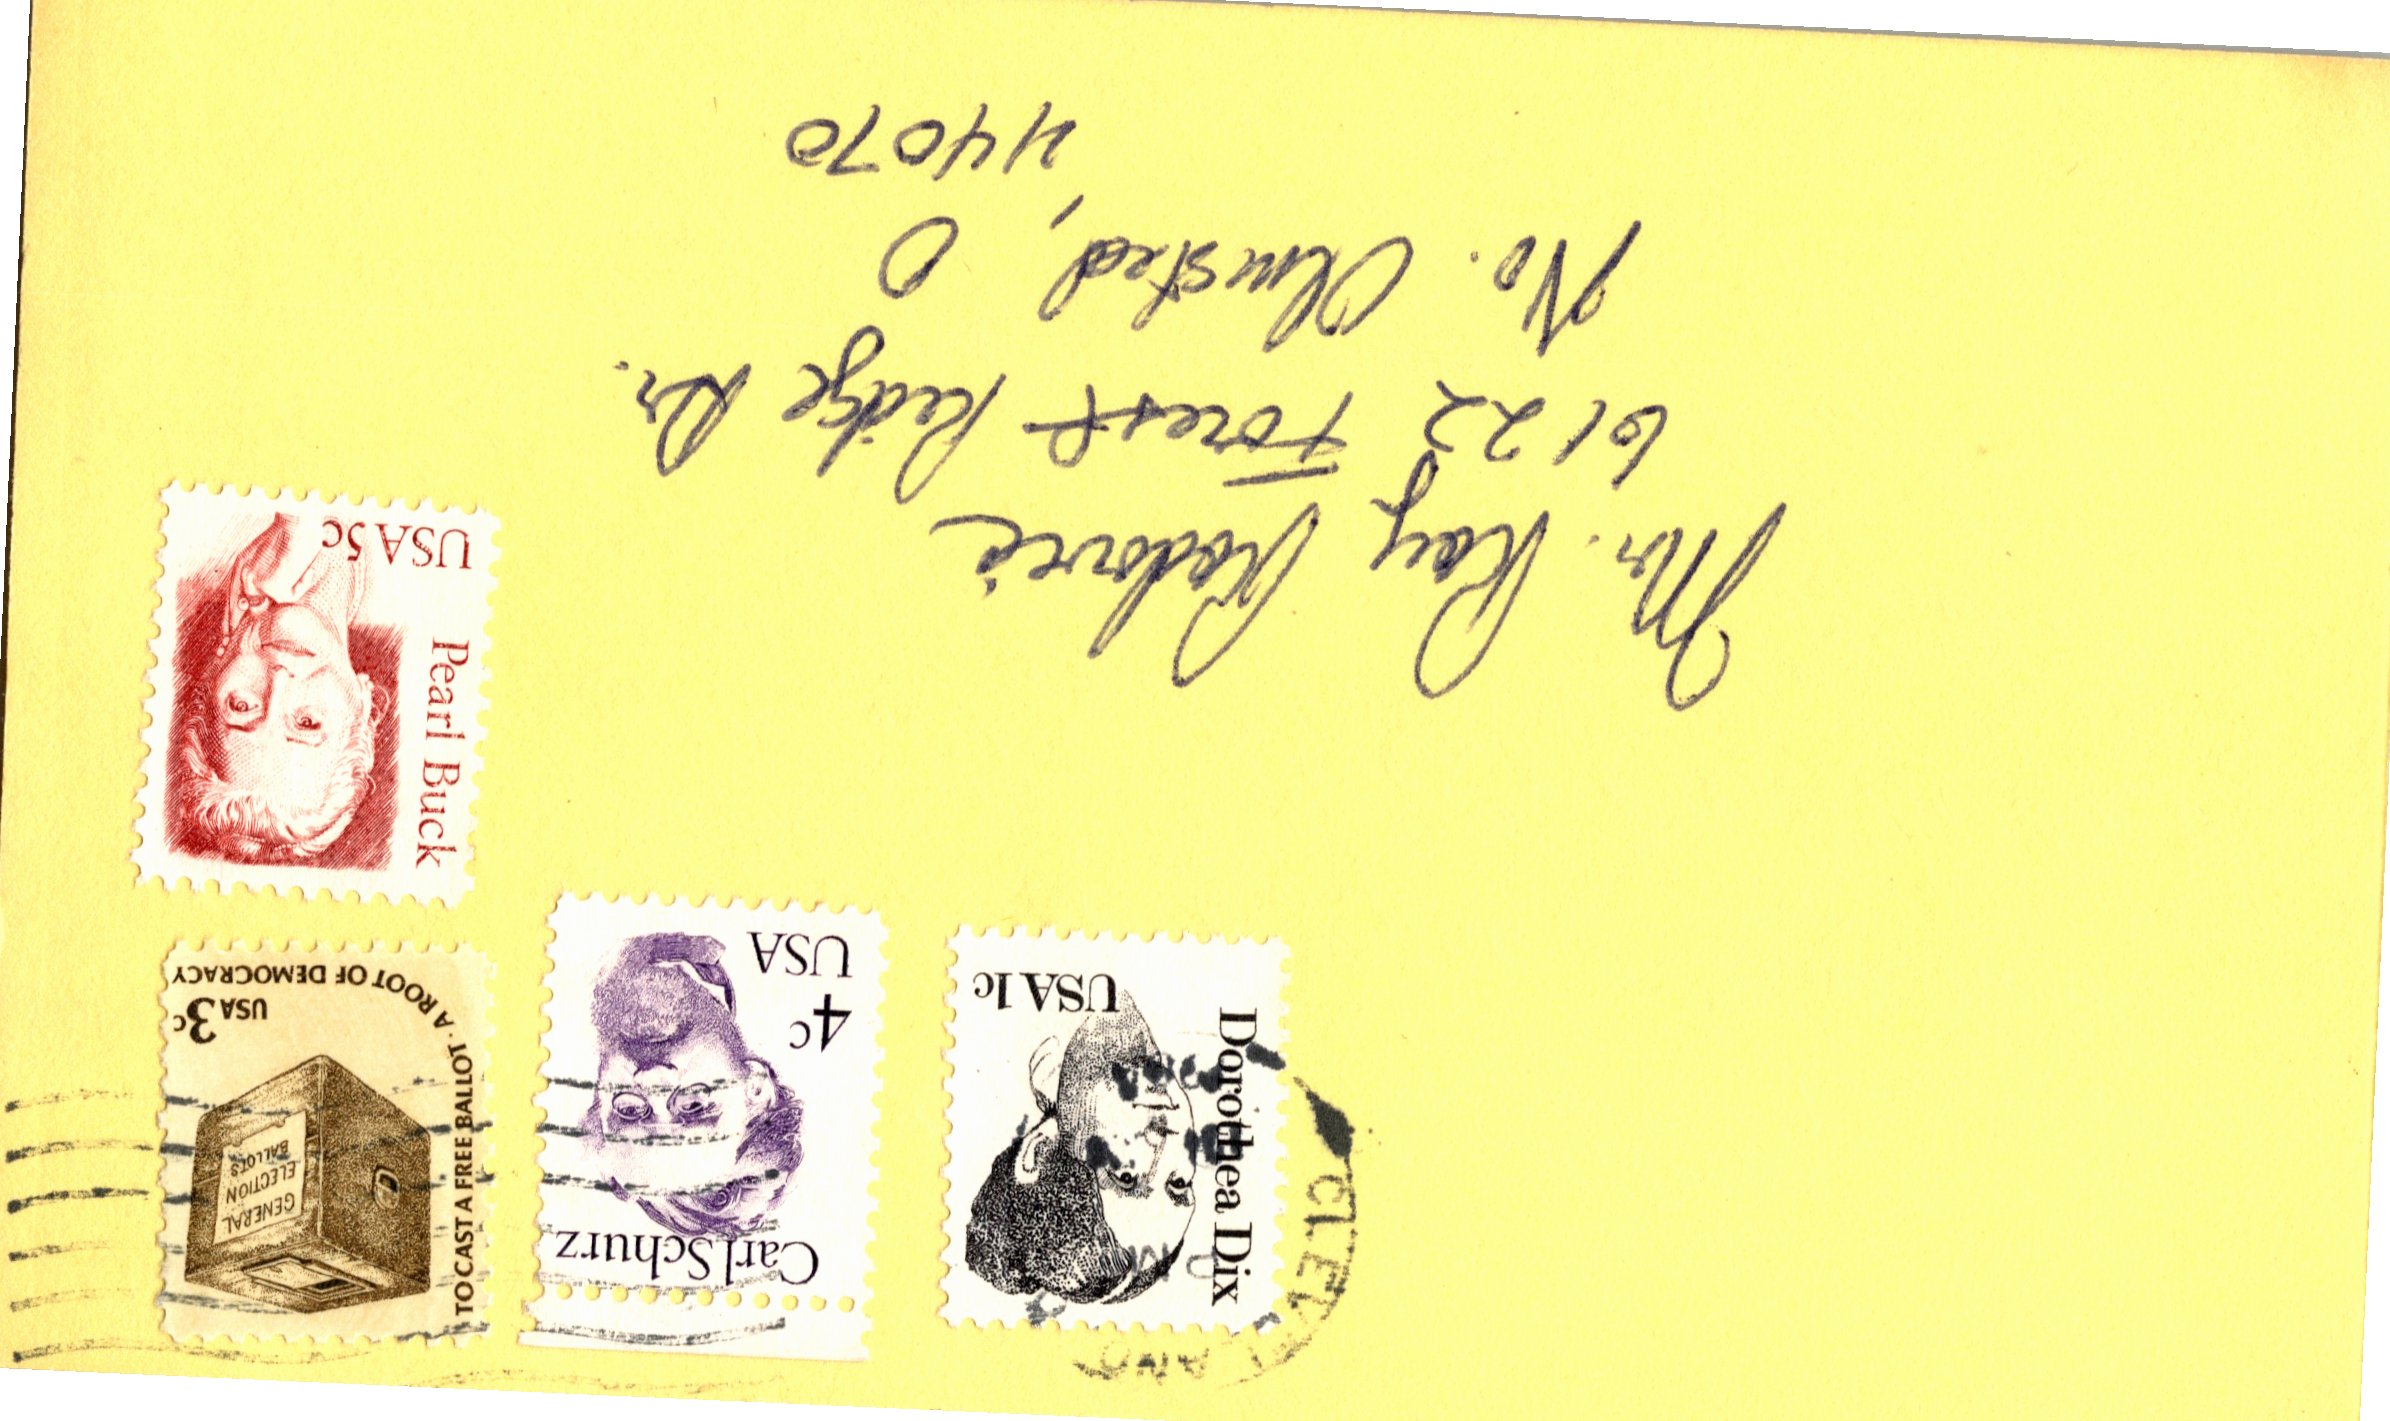 Mr. Ray Kadowie
6122 Forest Ridge Dr.
No. Olmsted, O
44070
Dorothea Dix
USA 1c
Carl Schurz
4c
USA
TO CAST A FREE BALLOT · A ROOT OF DEMOCRACY
USA 3c
GENERAL
ELECTION
BALLOTS
Pearl Buck
USA 5c
CLEVELAND